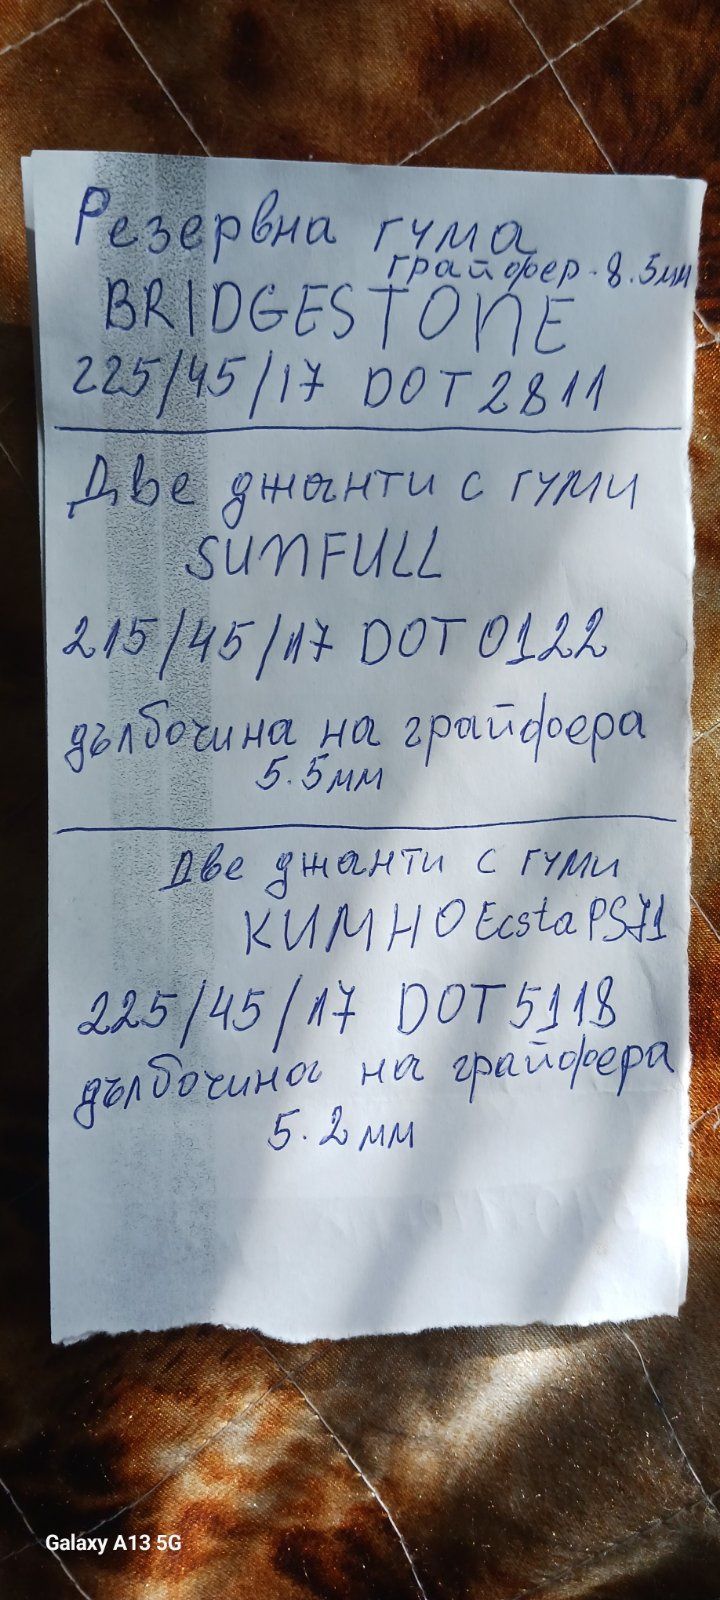 Резервна гума
грайфер-8.5мм
BRIDGESTONE
225/45/17 DOT2811
Две джанти с гуми
SUNFULL
215/45/17 DOT0122
дълбочина на грайфера
5.5мм
Две джанти с гуми
KUMHO Ecsta PS71
225/45/17 DOT5118
дълбочина на грайфера
5.2мм
Galaxy A13 5G